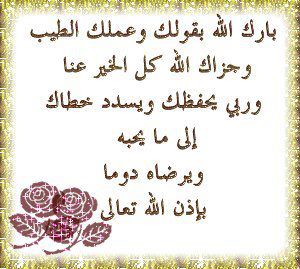 بارك الله بقولك وعملك الطيب
وجزاك الله كل الخير عنا
وربي يحفظك ويسدد خطاك
إلى ما يحبه
ويرضاه دوما
بإذن الله تعالى